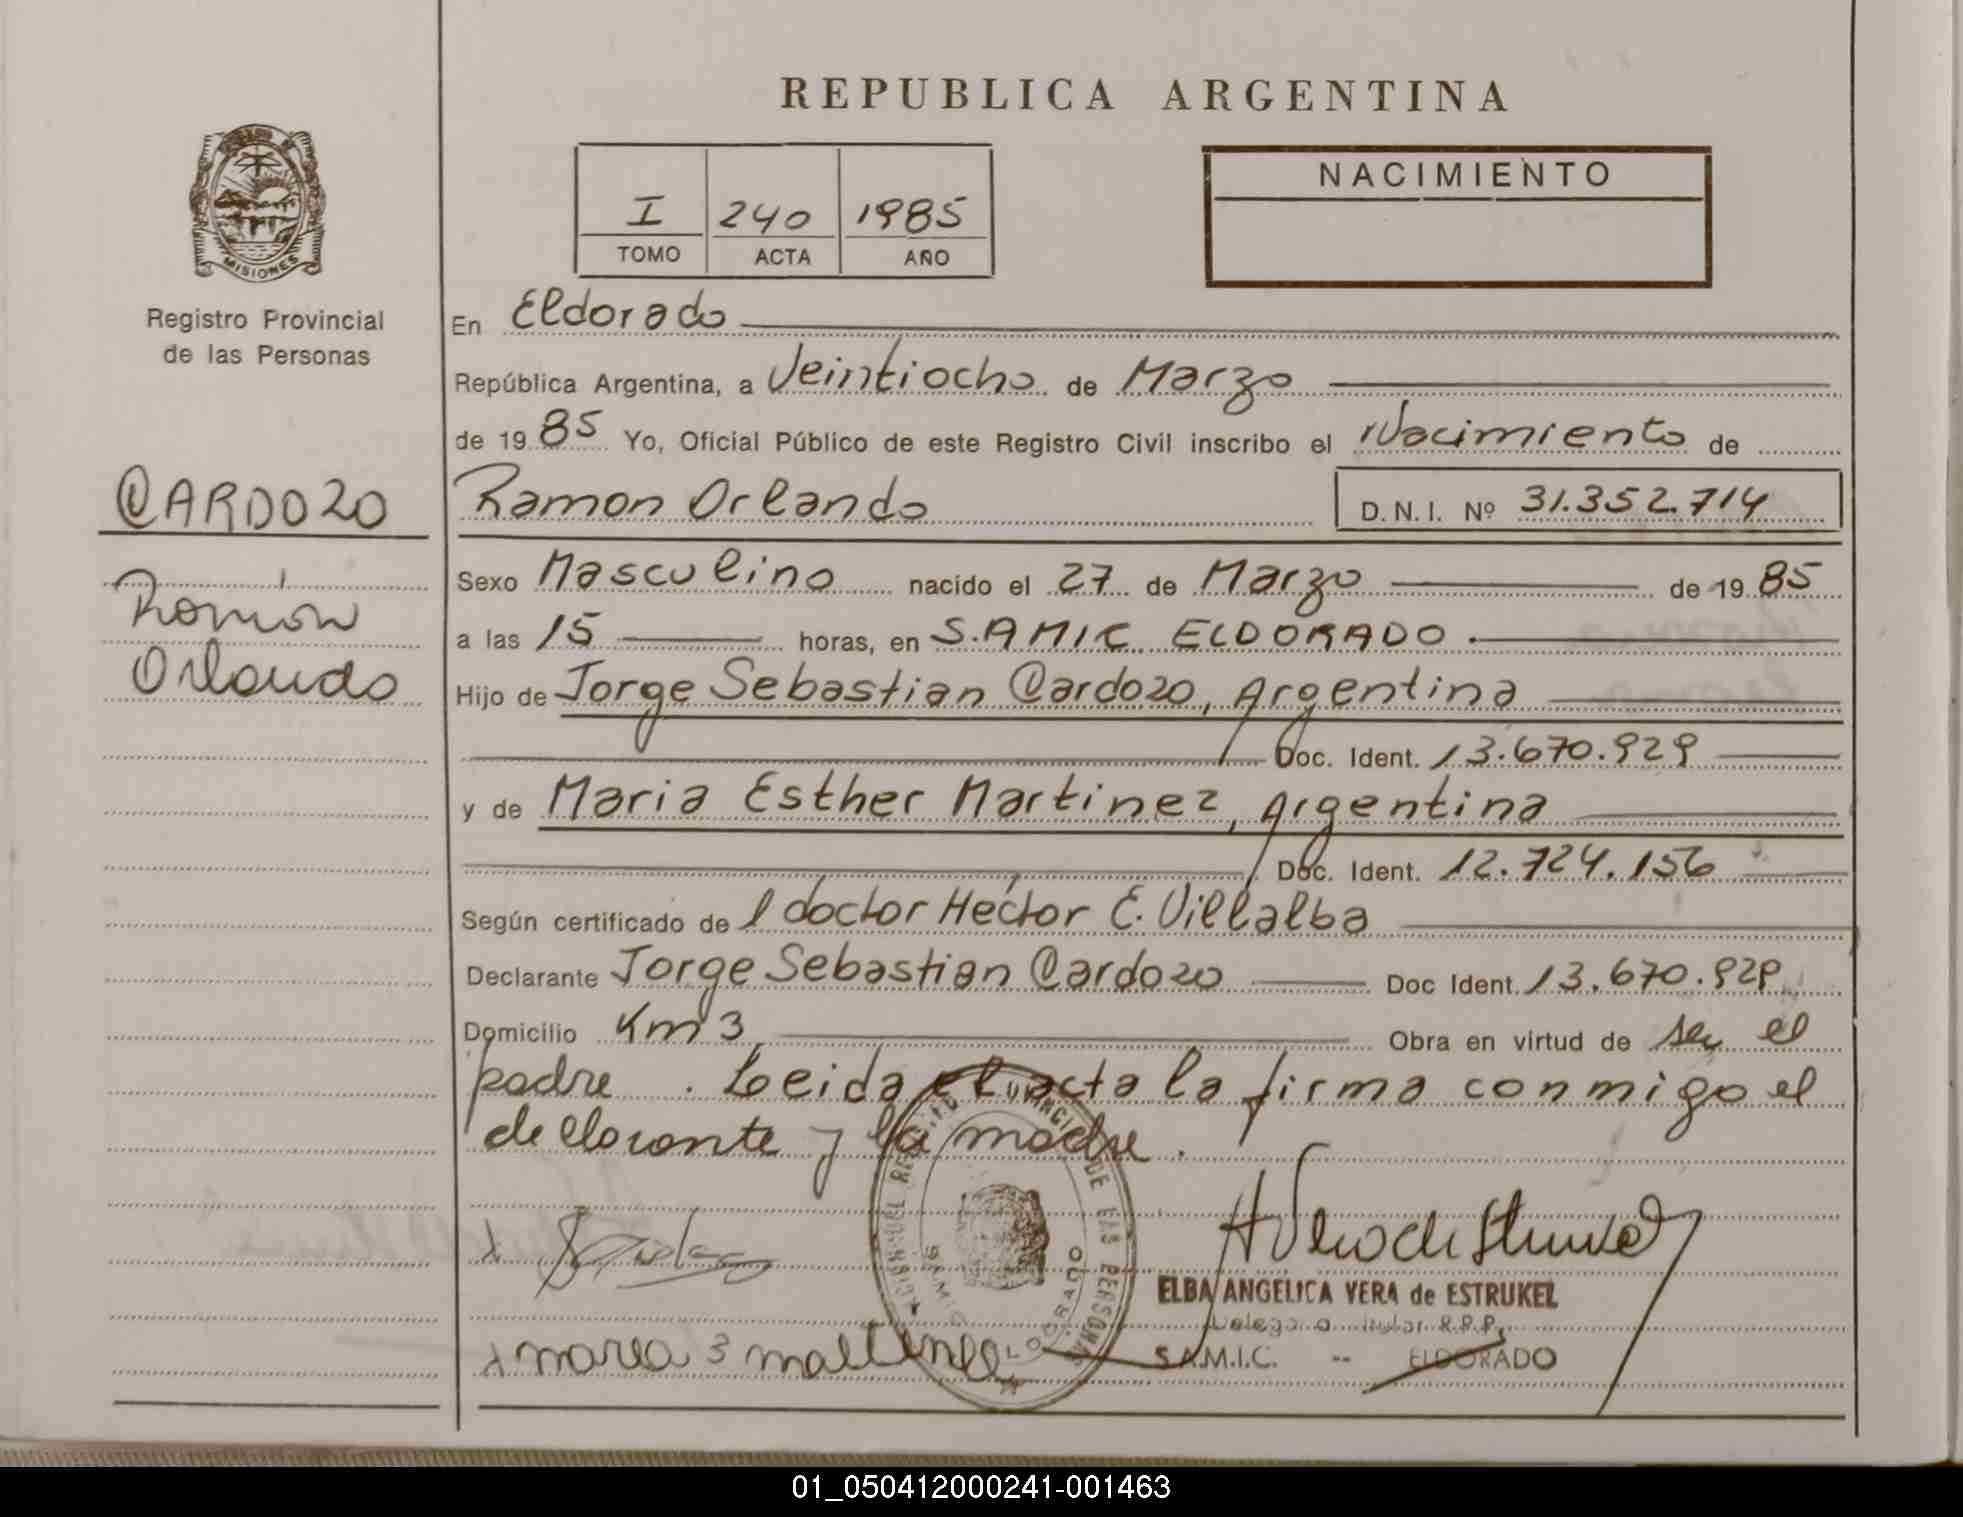 REPUBLICA ARGENTINA
MISIONES
Registro Provincial
de las Personas
I 240 1985
TOMO ACTA AÑO
NACIMIENTO
En Eldorado
República Argentina, a Veintiocho de Marzo
de 19 85 Yo, Oficial Público de este Registro Civil inscribo el Nacimiento de
CARDOZO
Ramon Orlando D.N.I. Nº 31.352.714
Ramón
Orlando
Sexo Masculino nacido el 27 de Marzo de 19 85
a las 15 horas, en S.AMIC ELDORADO.
Hijo de Jorge Sebastian Cardozo, Argentina
Doc. Ident. 13.670.929
y de Maria Esther Martinez, Argentina
Doc. Ident. 12.724.156
Según certificado de l doctor Hector E. Villalba
Declarante Jorge Sebastian Cardozo Doc Ident. 13.670.929
Domicilio Km 3 Obra en virtud de ser el
padre. Leida el acta la firma conmigo el
declarante y la madre.
ELBA ANGELICA VERA de ESTRUKEL
R.P.P.
S.A.M.I.C. -- ELDORADO
x maria
DE LAS PERSONAS
SAMIC ELDORADO
01_050412000241-001463